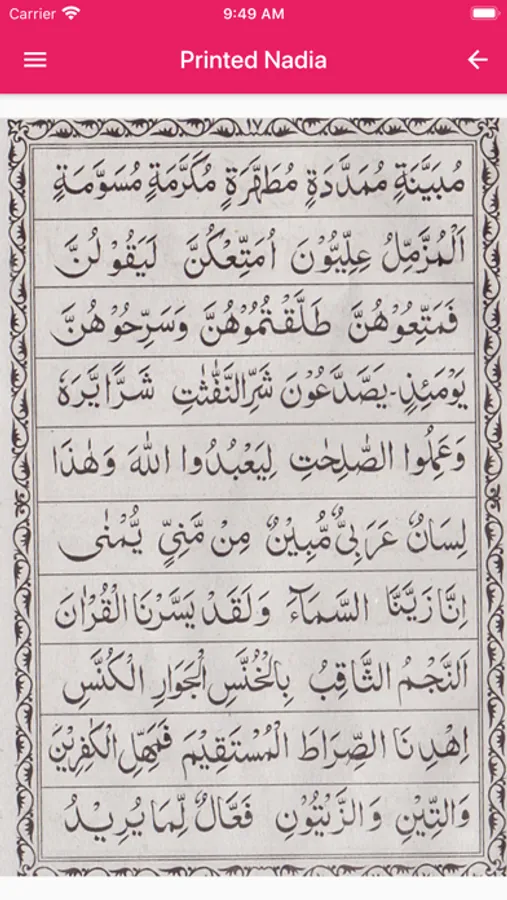 Carrier 9:49 AM
Printed Nadia
١٧
مُبَيِّنَةٍ مُمَدَّدَةٍ مُطَهَّرَةٍ مُكَرَّمَةٍ مُسَوَّمَةٍ
اَلْمُزَّمِّلُ عِلِّيُّوْنَ اُمَتِّعْكُنَّ لَيَقُوْلُنَّ
فَمَتِّعُوْهُنَّ طَلَّقْتُمُوْهُنَّ وَسَرِّحُوْهُنَّ
يَوْمَئِذٍ يَصَّدَّعُوْنَ شَرِّ النَّفّٰثٰتِ شَرًّا يَّرَهٗ
وَعَمِلُوا الصّٰلِحٰتِ لِيَعْبُدُوا اللّٰهَ وَهٰذَا
لِسَانٌ عَرَبِيٌّ مُّبِيْنٌ مِنْ مَّنِيٍّ يُّمْنٰى
اِنَّا زَيَّنَّا السَّمَآءَ وَلَقَدْ يَسَّرْنَا الْقُرْاٰنَ
اَلنَّجْمُ الثَّاقِبُ بِالْخُنَّسِ الْجَوَارِ الْكُنَّسِ
اِهْدِنَا الصِّرَاطَ الْمُسْتَقِيْمَ فَمَهِّلِ الْكٰفِرِيْنَ
وَالتِّيْنِ وَالزَّيْتُوْنِ فَعَّالٌ لِّمَا يُرِيْدُ